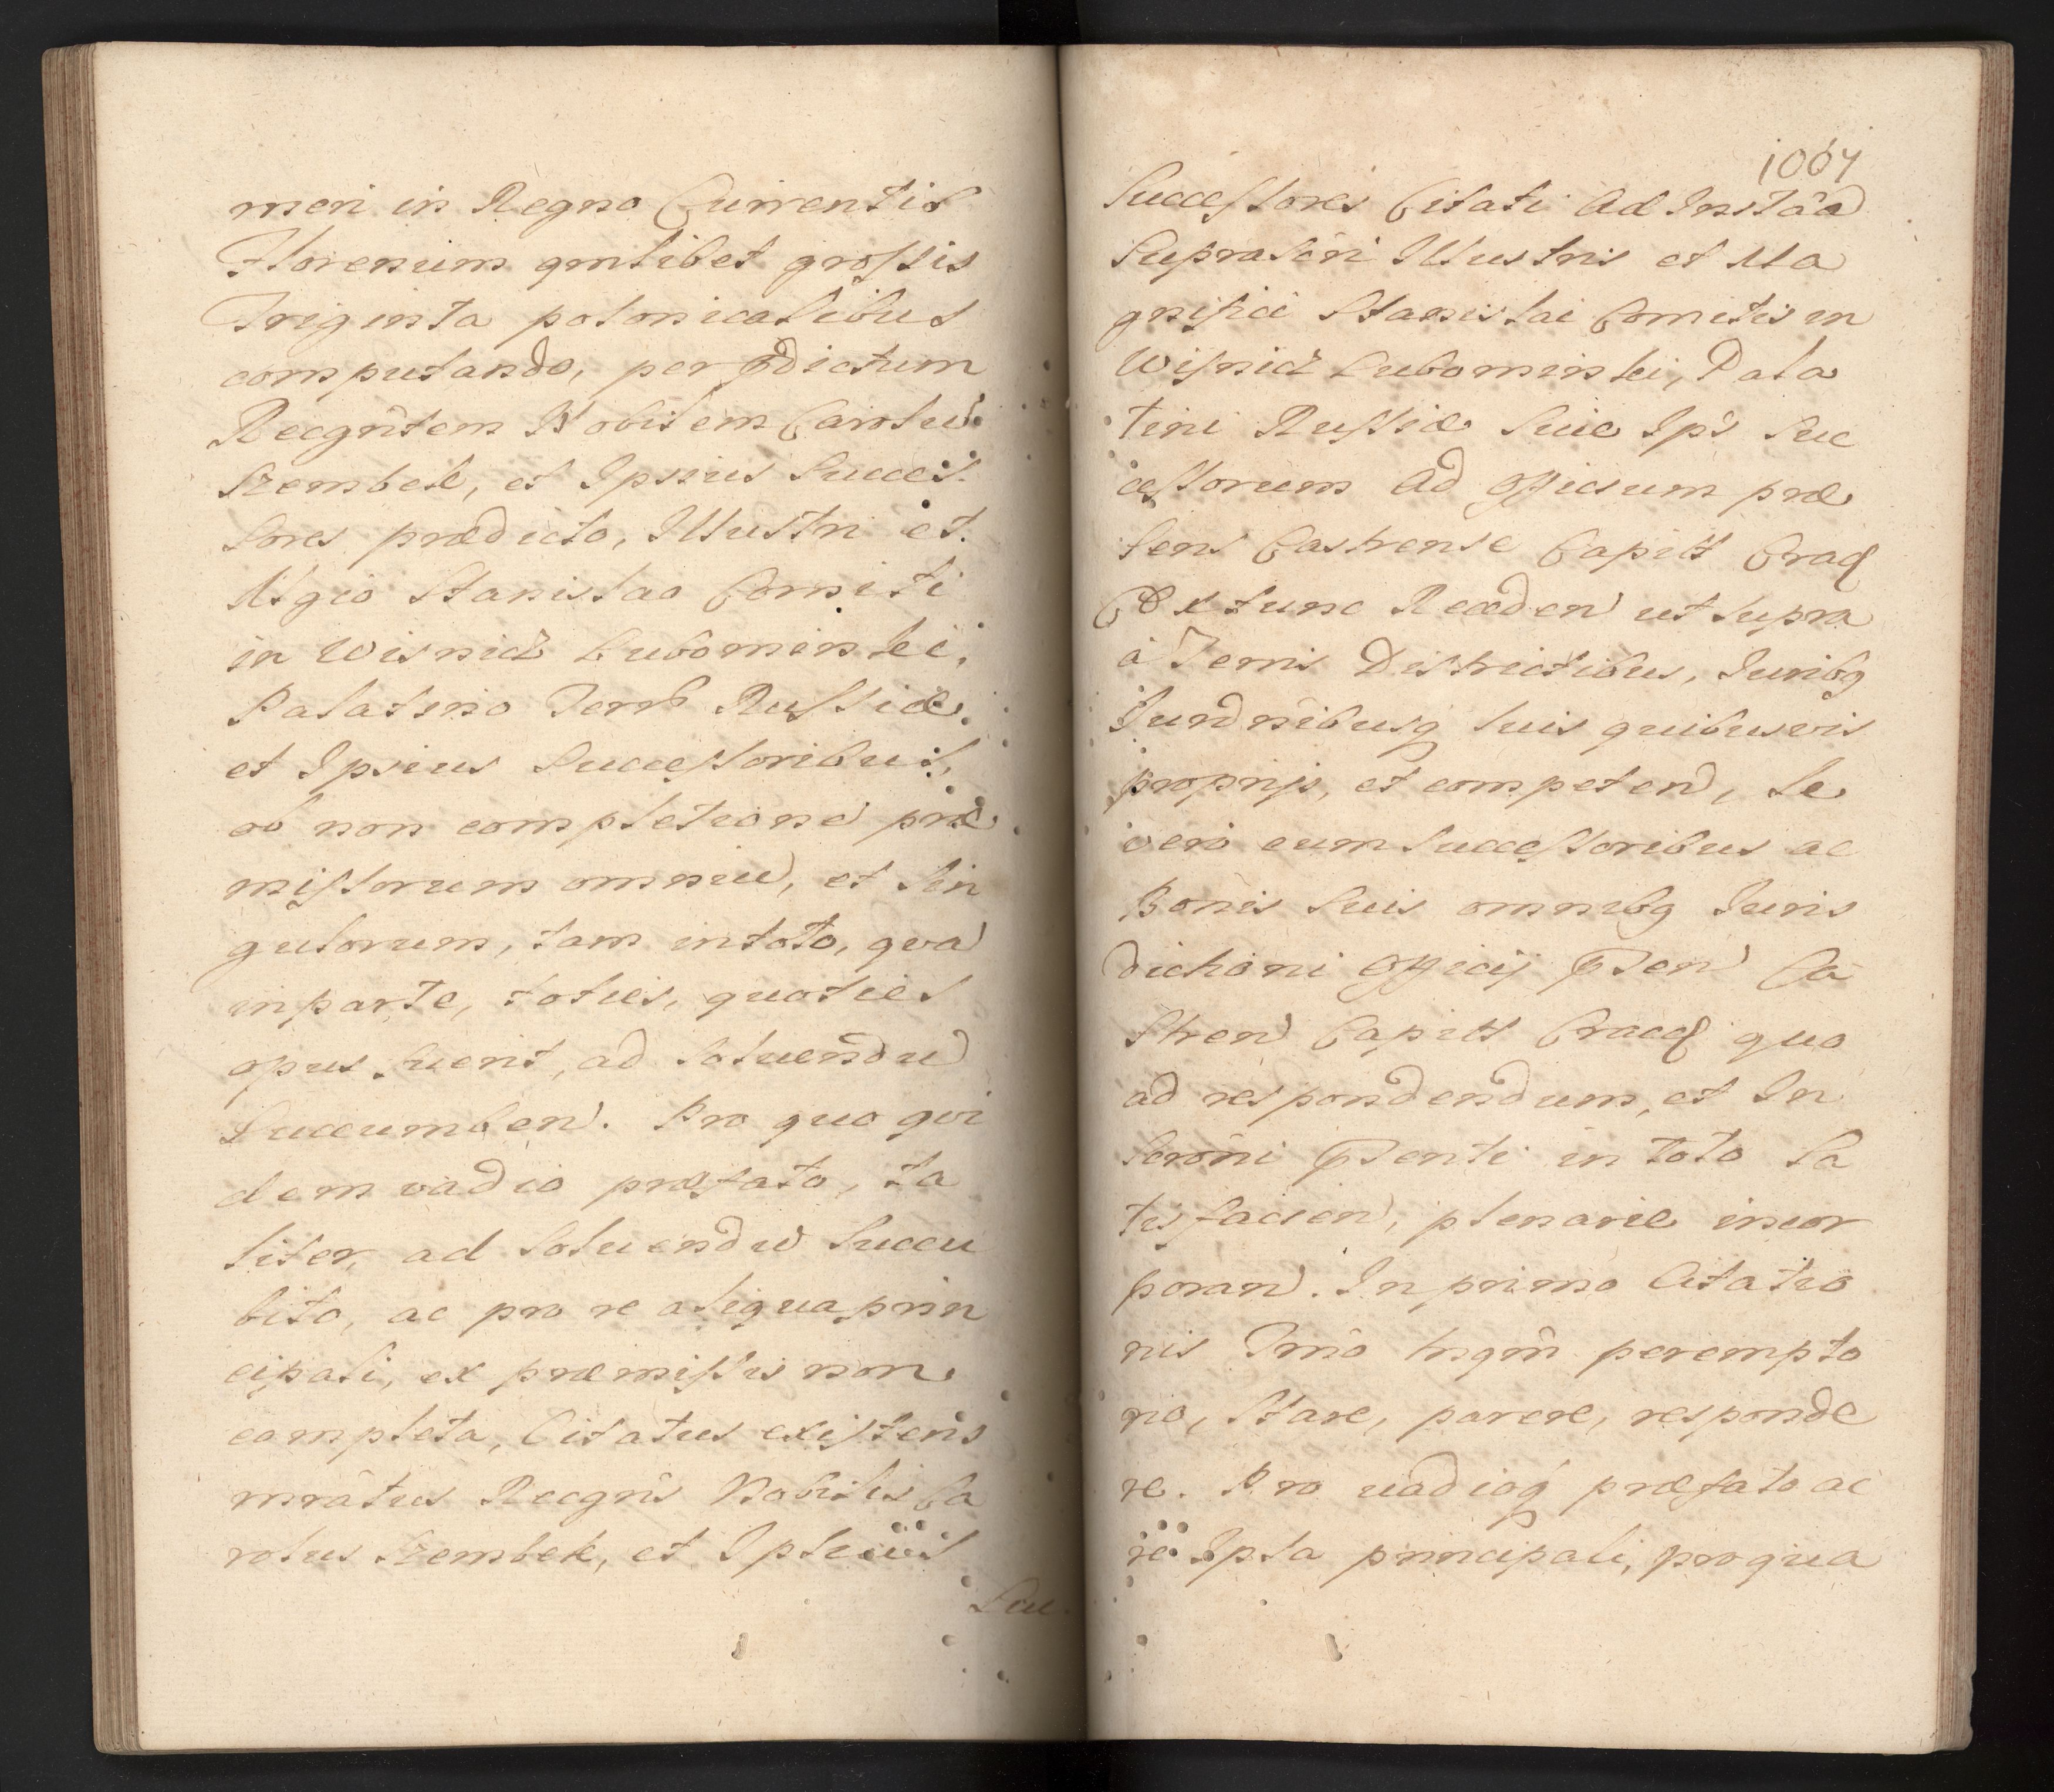 meri in Regno Currentis
Florenum qmlibet grossis
Triginta polonicalibus
computando, per pdictum
Recgntem Nobilem Carolu
Szembek, et Ipsius Succes
sores prædicto, Illustri et
Mgco Stanislao Comiti
in Wisnicz Lubomirskei,
Palatino Terrs Russiæ,
et Ipsius Successoribus,
ob non completione præ
missorum omniu, et sin
gulorum, tam in toto, qva
in parte, toties, quoties
opus fuerit, ad solvendu
Succumben. Pro quo qvi
dem vadio præfato, ta
liter, ad solvendu succu
bito, ac pro re aliqua prin
cipali, ex præmissis non
completa, Citatus existens
mratus Recgns Nobilis Ca
rolus Szembek, et Ipsius
Suc
1007
Successores Citati Ad Instaa
Suprascri Illustris et Ma
gnifici Stanislai Comitis in
Wisnicz Lubomirskei, Pala
tini Russiæ Sive Ips Suc
cessorum Ad Officium præ
sens Castrense Capitt Crac
Ex tunc Receden ut supra
a Terris Districtibus, Juribq
Jurdnibusq suis quibusvis
proprijs, et competen, se
vero cum Successoribus ac
Bonis Suis omnibq Juris
dictioni Officij psen Ca
stren Capitt Cracq quo
ad respondendum, et In
scrôni psenti in toto Sa
tisfacien, plenarie incor
poran. In primo Citatio
nis Tmo tnqm perempto
rio, Stare, parere, responde
re. Pro vadioq præfato ac
re Ipsa principali, pro qua